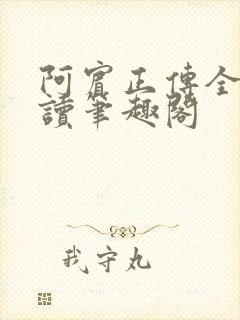 阿賓正傳全
讀筆趣閣
我守丸